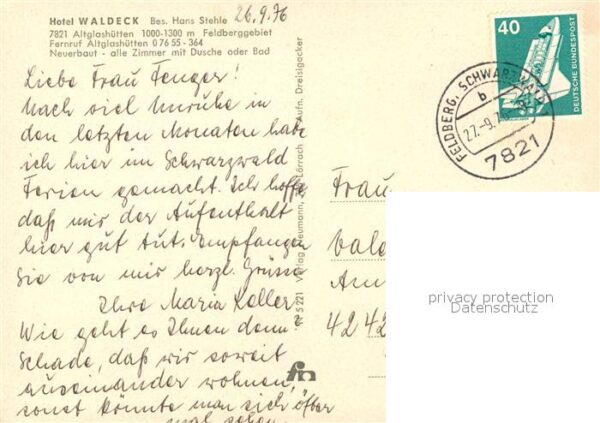 Hotel WALDECK Bes. Hans Stehle 26.9.76
7821 Altglashütten 1000-1300 m Feldberggebiet
Fernruf Altglashütten 0 76 55 - 364
Neuerbaut - alle Zimmer mit Dusche oder Bad
Liebe Frau Fenger!
Nach viel Unruhe in
den letzten Monaten habe
ich hier im Schwarzwald
Ferien gemacht. Ich hoffe
daß mir der Aufenthalt
hier gut tut. Empfangen
Sie von mir herzl. Grüsse
Ihre Maria Koller
Wie geht es Ihnen denn?
Schade, daß wir soweit
auseinander wohnen,
sonst könnte man sich öfter
mal sehen.
Verlag Neumann, Lörrach - Aufn. Dreisigacker
5 221
40
DEUTSCHE BUNDESPOST
FELDBERG, SCHWARZWALD
b
27.-9.7
7821
Frau
Am
424
privacy protection
Datenschutz